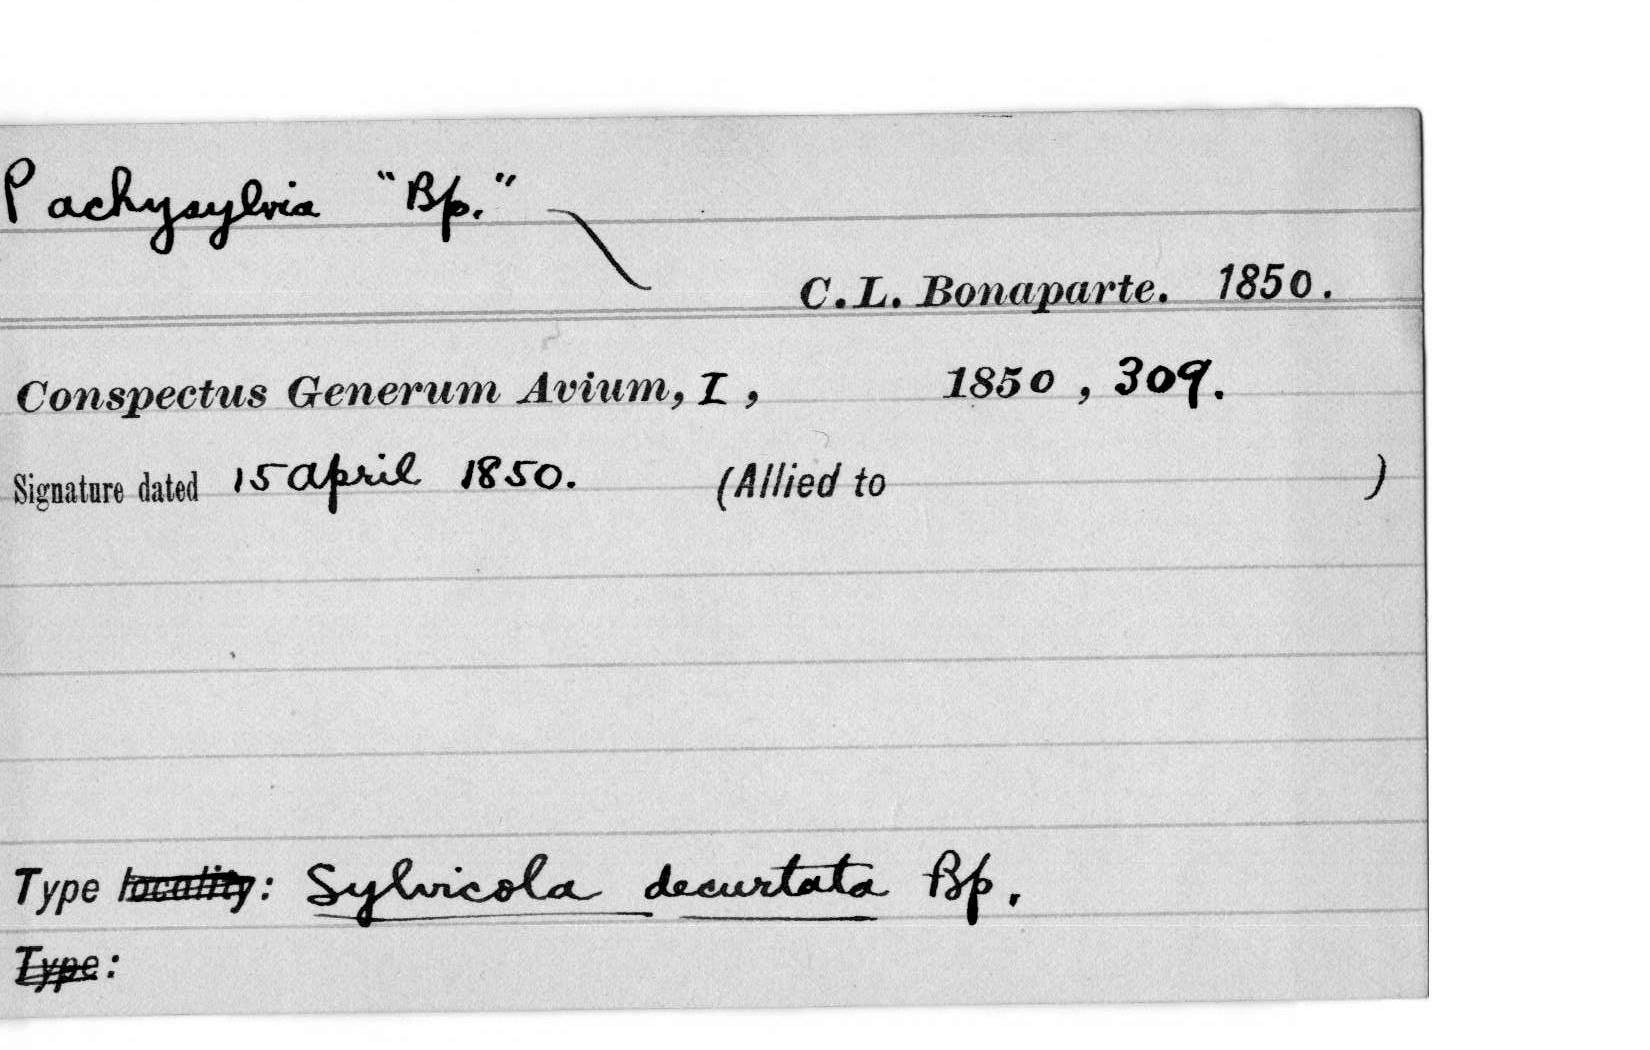 Pachysylvia "Bp."
C. L. Bonaparte. 1850.
Conspectus Generum Avium, I, 1850, 309.
Signature dated 15 April 1850. (Allied to )
Type locality: Sylvicola decurtata Bp.
Type: